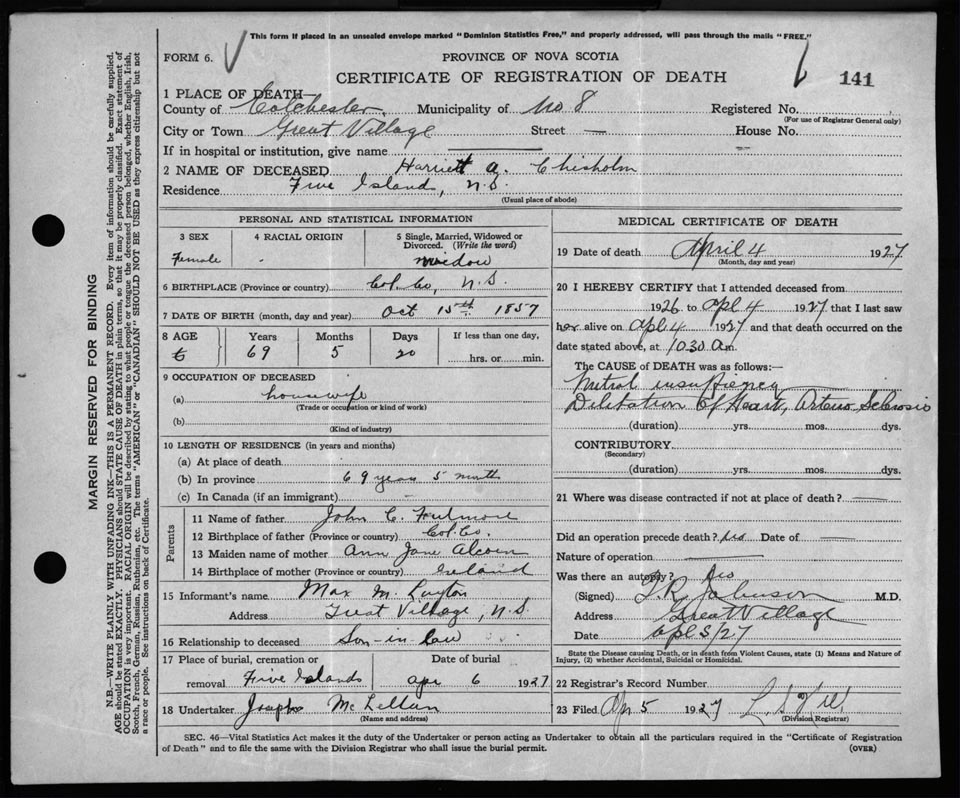 This form if placed in an unsealed envelope marked "Dominion Statistics Free," and properly addressed, will pass through the mails "FREE."
FORM 6.
PROVINCE OF NOVA SCOTIA
CERTIFICATE OF REGISTRATION OF DEATH
141
1 PLACE OF DEATH
County of Colchester Municipality of No 8 Registered No.
(For use of Registrar General only)
City or Town Great Village Street — House No.
If in hospital or institution, give name
2 NAME OF DECEASED Harriett A. Chisholm
Residence Five Island, N.S.
(Usual place of abode)
PERSONAL AND STATISTICAL INFORMATION
3 SEX
Female
4 RACIAL ORIGIN
5 Single, Married, Widowed or Divorced. (Write the word)
widow
6 BIRTHPLACE (Province or country) Col. Co, N.S.
7 DATE OF BIRTH (month, day and year) Oct 15th 1857
8 AGE Years Months Days If less than one day,
69 5 20 hrs. or min.
9 OCCUPATION OF DECEASED
(a) housewife
(Trade or occupation or kind of work)
(b)
(Kind of industry)
10 LENGTH OF RESIDENCE (in years and months)
(a) At place of death
(b) In province 69 years 5 month
(c) In Canada (if an immigrant)
Parents
11 Name of father John C. Fulmore
12 Birthplace of father (Province or country) Col. Co.
13 Maiden name of mother Ann Jane Alcorn
14 Birthplace of mother (Province or country) Ireland
15 Informant's name Max M. Layton
Address Great Village, N.S.
16 Relationship to deceased Son-in-law
17 Place of burial, cremation or removal Five Islands
Date of burial
Apr 6 1927
18 Undertaker Joseph McLellan
(Name and address)
MEDICAL CERTIFICATE OF DEATH
19 Date of death April 4 1927
(Month, day and year)
20 I HEREBY CERTIFY that I attended deceased from
1926 to Apl 4 1927 that I last saw
her alive on Apl 4 1927 and that death occurred on the
date stated above, at 10.30 a.m.
The CAUSE of DEATH was as follows:—
Mitral insufficiency
Dilitation of Heart, Arterio Sclerosis
(duration) yrs. mos. dys.
CONTRIBUTORY
(Secondary)
(duration) yrs. mos. dys.
21 Where was disease contracted if not at place of death? —
Did an operation precede death? No Date of —
Nature of operation
Was there an autopsy? No
(Signed) T.R. Johnson M.D.
Address Great Village
Date Apl 5/27
State the Disease causing Death, or in death from Violent Causes, state (1) Means and Nature of Injury, (2) whether Accidental, Suicidal or Homicidal.
22 Registrar's Record Number
23 Filed Ap 5 1927
(Division Registrar)
SEC. 46—Vital Statistics Act makes it the duty of the Undertaker or person acting as Undertaker to obtain all the particulars required in the "Certificate of Registration of Death" and to file the same with the Division Registrar who shall issue the burial permit.
(OVER)
MARGIN RESERVED FOR BINDING
N.B.—WRITE PLAINLY WITH UNFADING INK—THIS IS A PERMANENT RECORD. Every item of information should be carefully supplied.
AGE should be stated EXACTLY. PHYSICIANS should STATE CAUSE OF DEATH in plain terms, so that it may be properly classified. Exact statement of
OCCUPATION is very important. RACIAL ORIGIN will be described by stating to what people or tongue the deceased person belonged, whether English, Irish,
Scotch, French, German, Russian, Ruthenian, etc. The terms "AMERICAN" or "CANADIAN" SHOULD NOT BE USED as they express citizenship but not
a race or people. See instructions on back of Certificate.